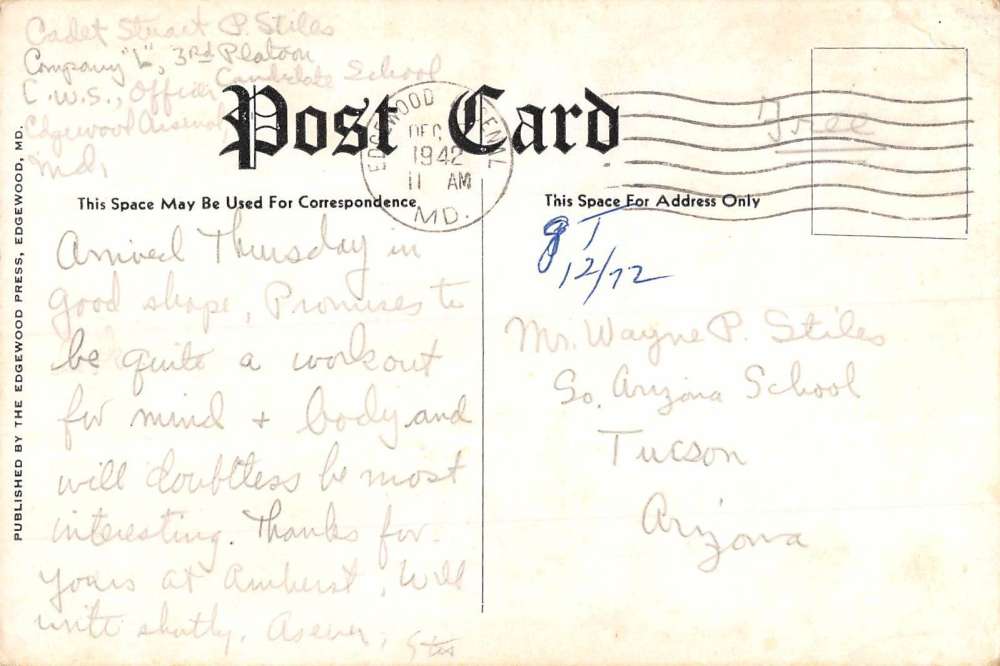 Cadet Stuart P. Stiles
Company "L", 3rd Platoon
C.W.S., Officer Candidate School
Edgewood Arsenal
Md.
Post Card
EDGEWOOD ARSENAL
DEC
1942
11 AM
MD.
Free
This Space May Be Used For Correspondence
This Space For Address Only
12/72
Arrived Thursday in
good shape, Promises to
be quite a workout
for mind + body and
will doubtless be most
interesting. Thanks for
yours at Amherst. Will
write shortly. As ever,
Mr. Wayne P. Stiles
So. Arizona School
Tucson
Arizona
PUBLISHED BY THE EDGEWOOD PRESS, EDGEWOOD, MD.